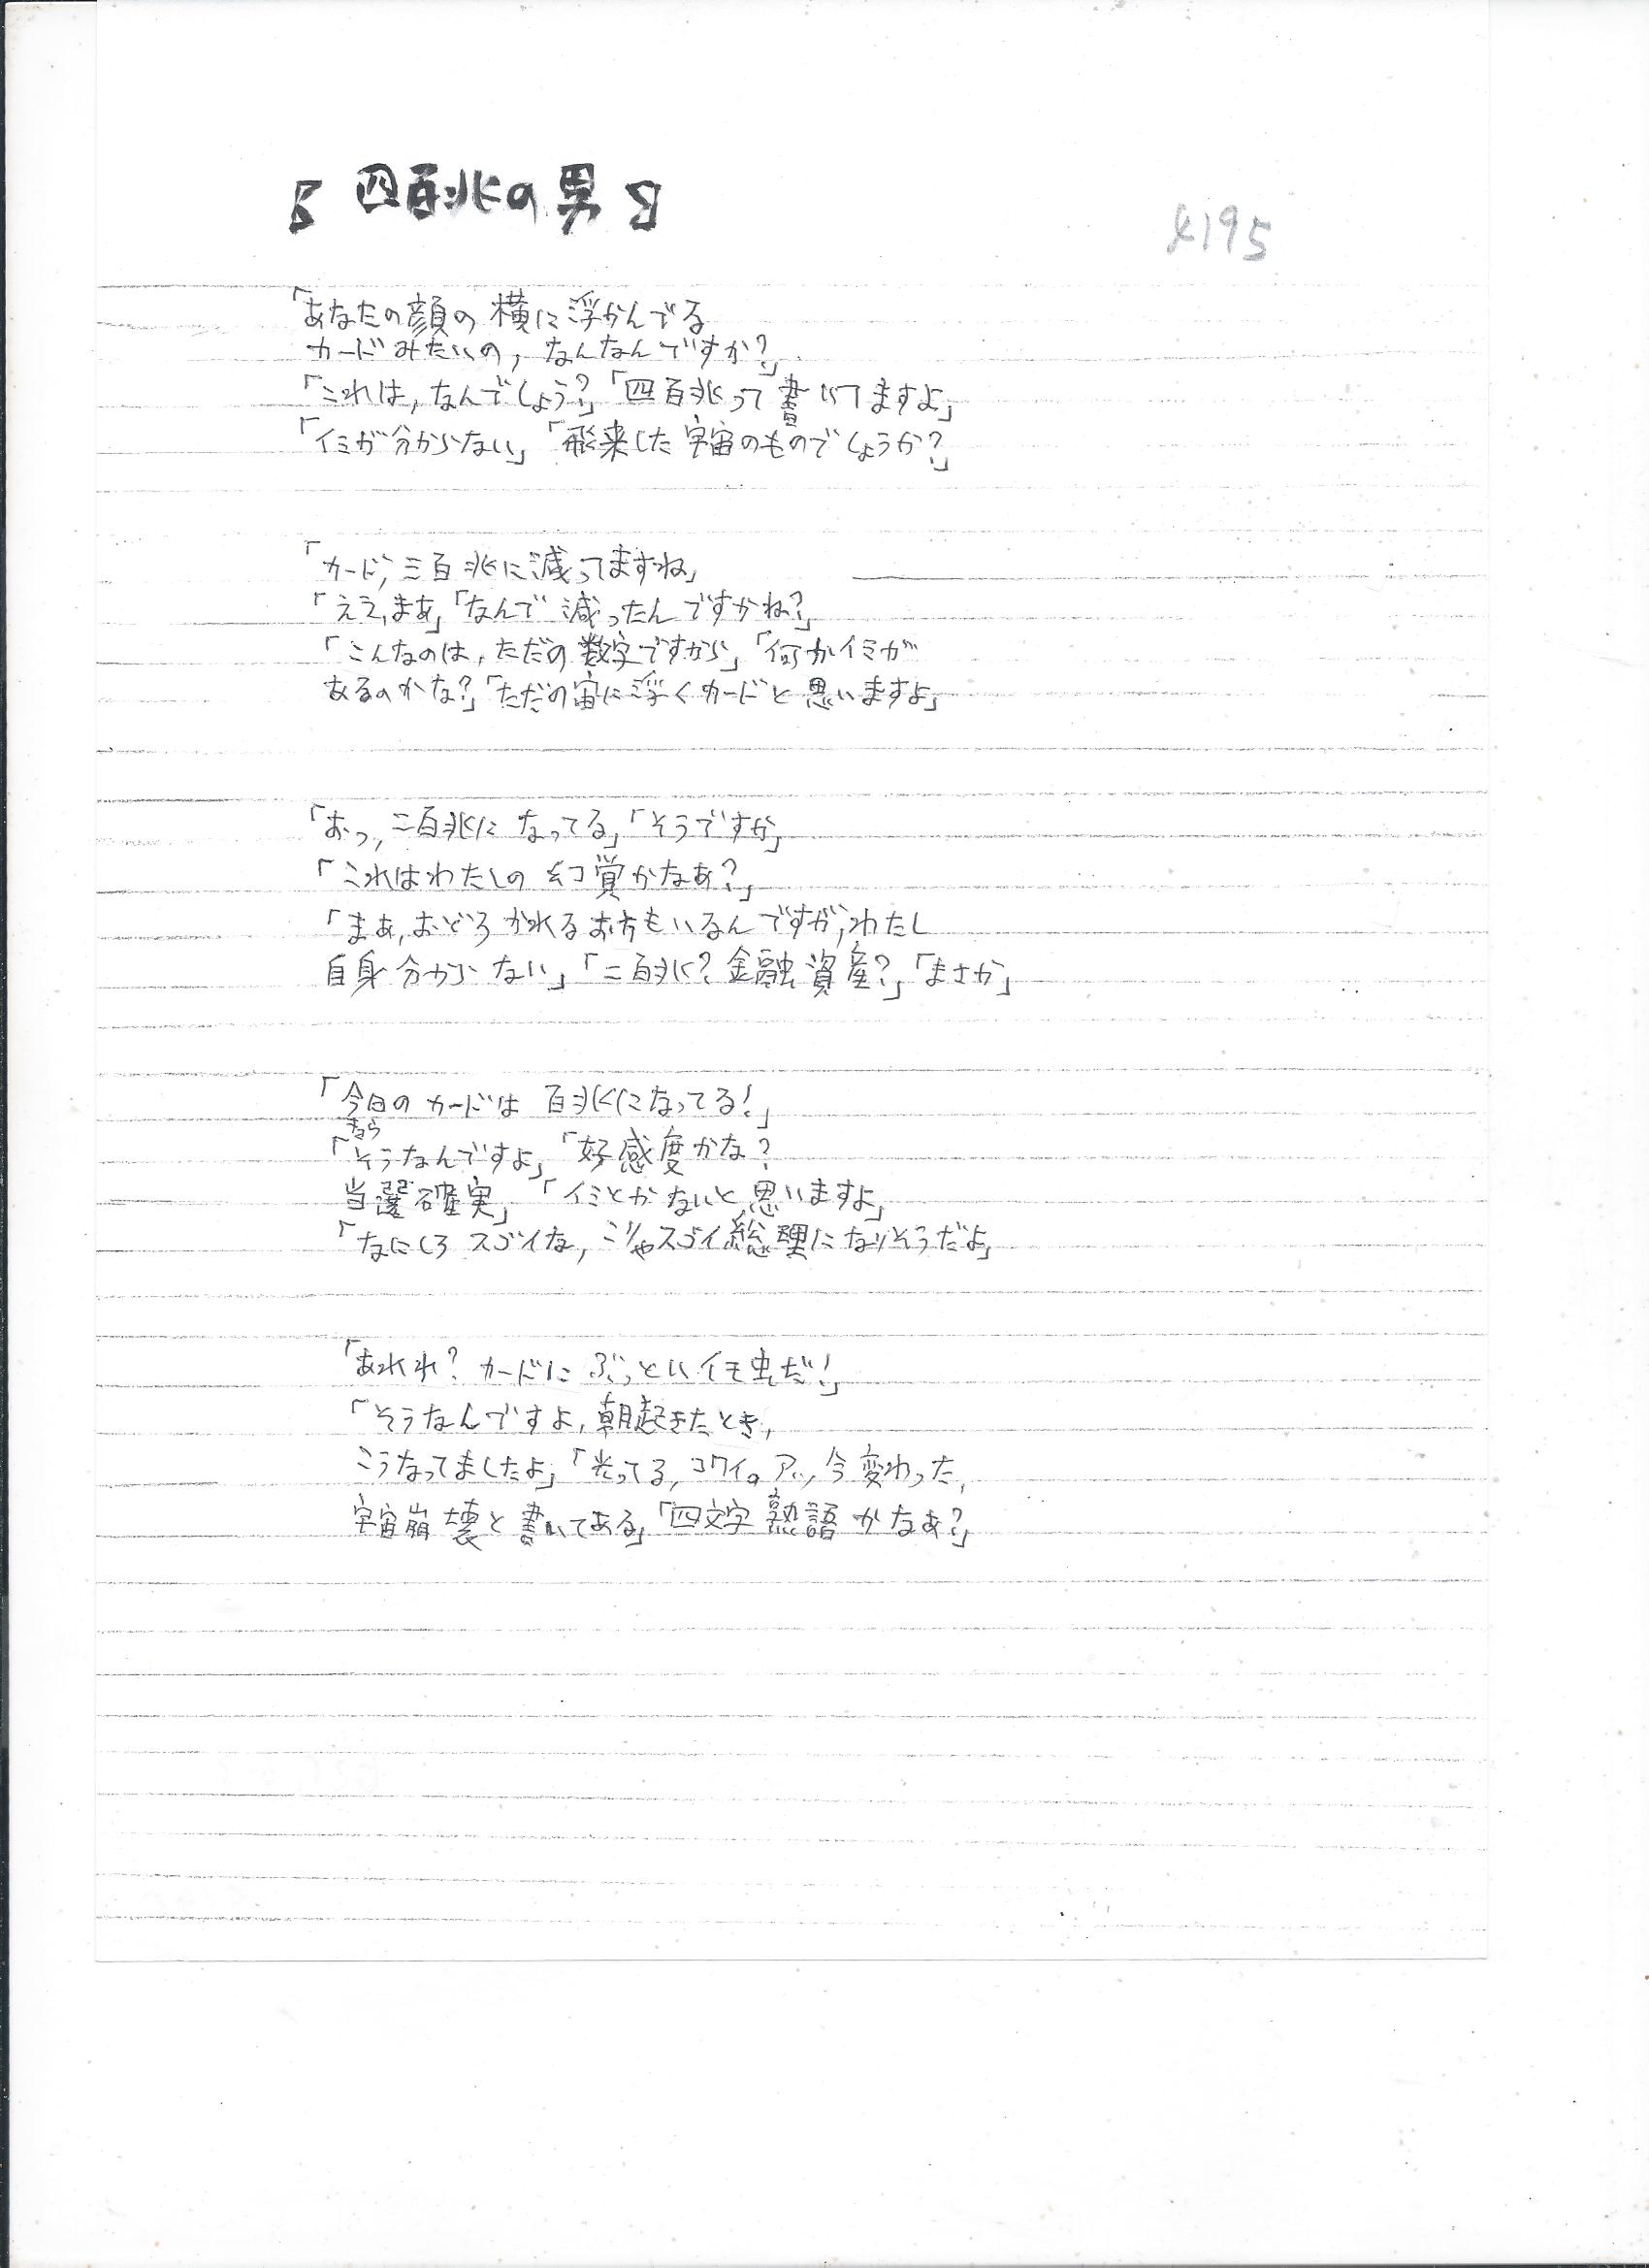 【四百兆の男】
4195
「あなたの顔の横に浮かんでる
カードみたいの,なんなんですか?」
「これは,なんでしょう?」「四百兆って書いてますよ」
「イミが分からない」「飛来した宇宙のものでしょうか?」
「カード,三百兆に減ってますね」
「ええ,まあ」「なんで減ったんですかね?」
「こんなのは,ただの数字ですから」「何かイミが
あるのかな?」「ただの宙に浮くカードと思いますよ」
「おっ,二百兆になってる」「そうですか」
「これはわたしの幻覚かなあ?」
「まあ,おどろかれるお方もいるんですが,わたし
自身分からない」「二百兆?金融資産?」「まさか」
「今日のカードは百兆になってる!」
「そうなんですよ」「好感度かな?
当選確実」「イミとかないと思いますよ」
「なにしろスゴイな,こりゃスゴイ総理になりそうだよ」
「あれれ?カードにぶっといイモ虫だ!」
「そうなんですよ,朝起きたとき,
こうなってましたよ」「光ってる,コワイ。アッ,今変わった,
宇宙崩壊と書いてある」「四文字熟語かなあ?」